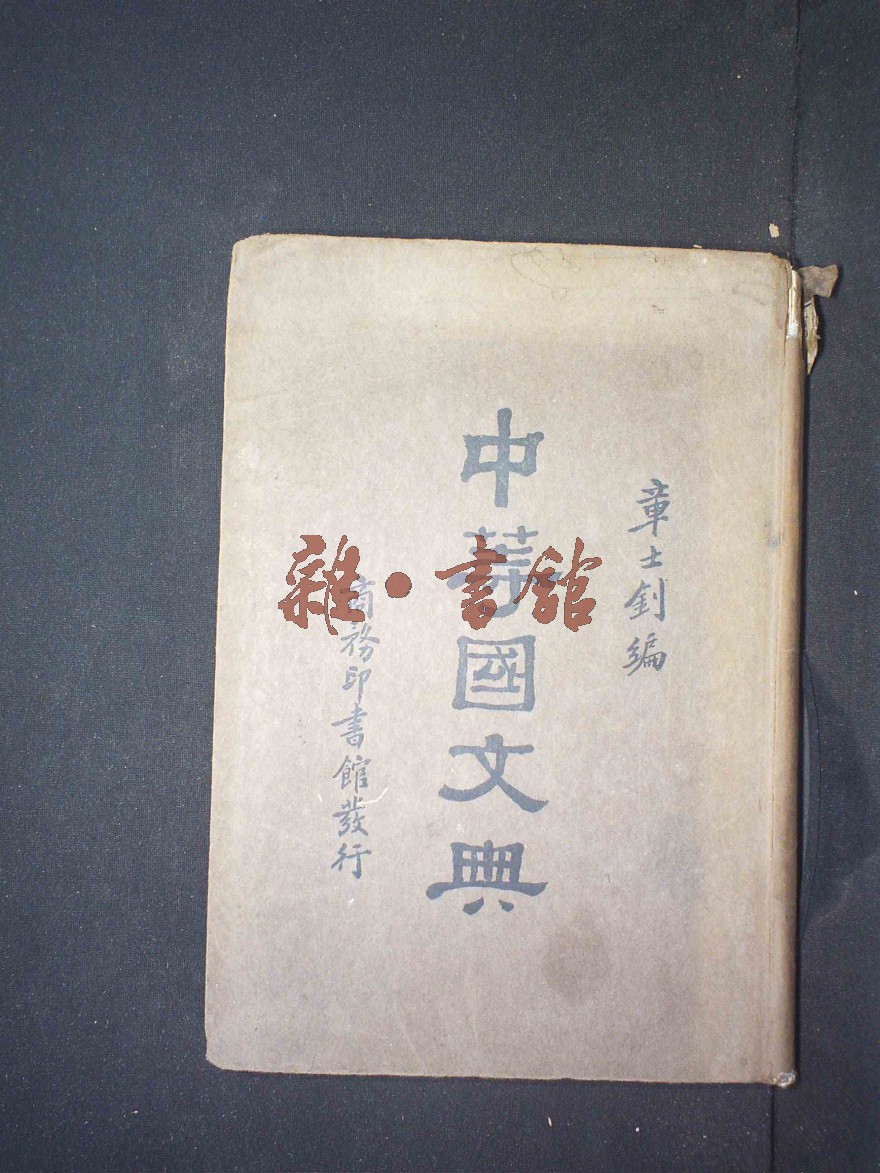 章士釗編
中華國文典
商務印書館發行
雜·書館